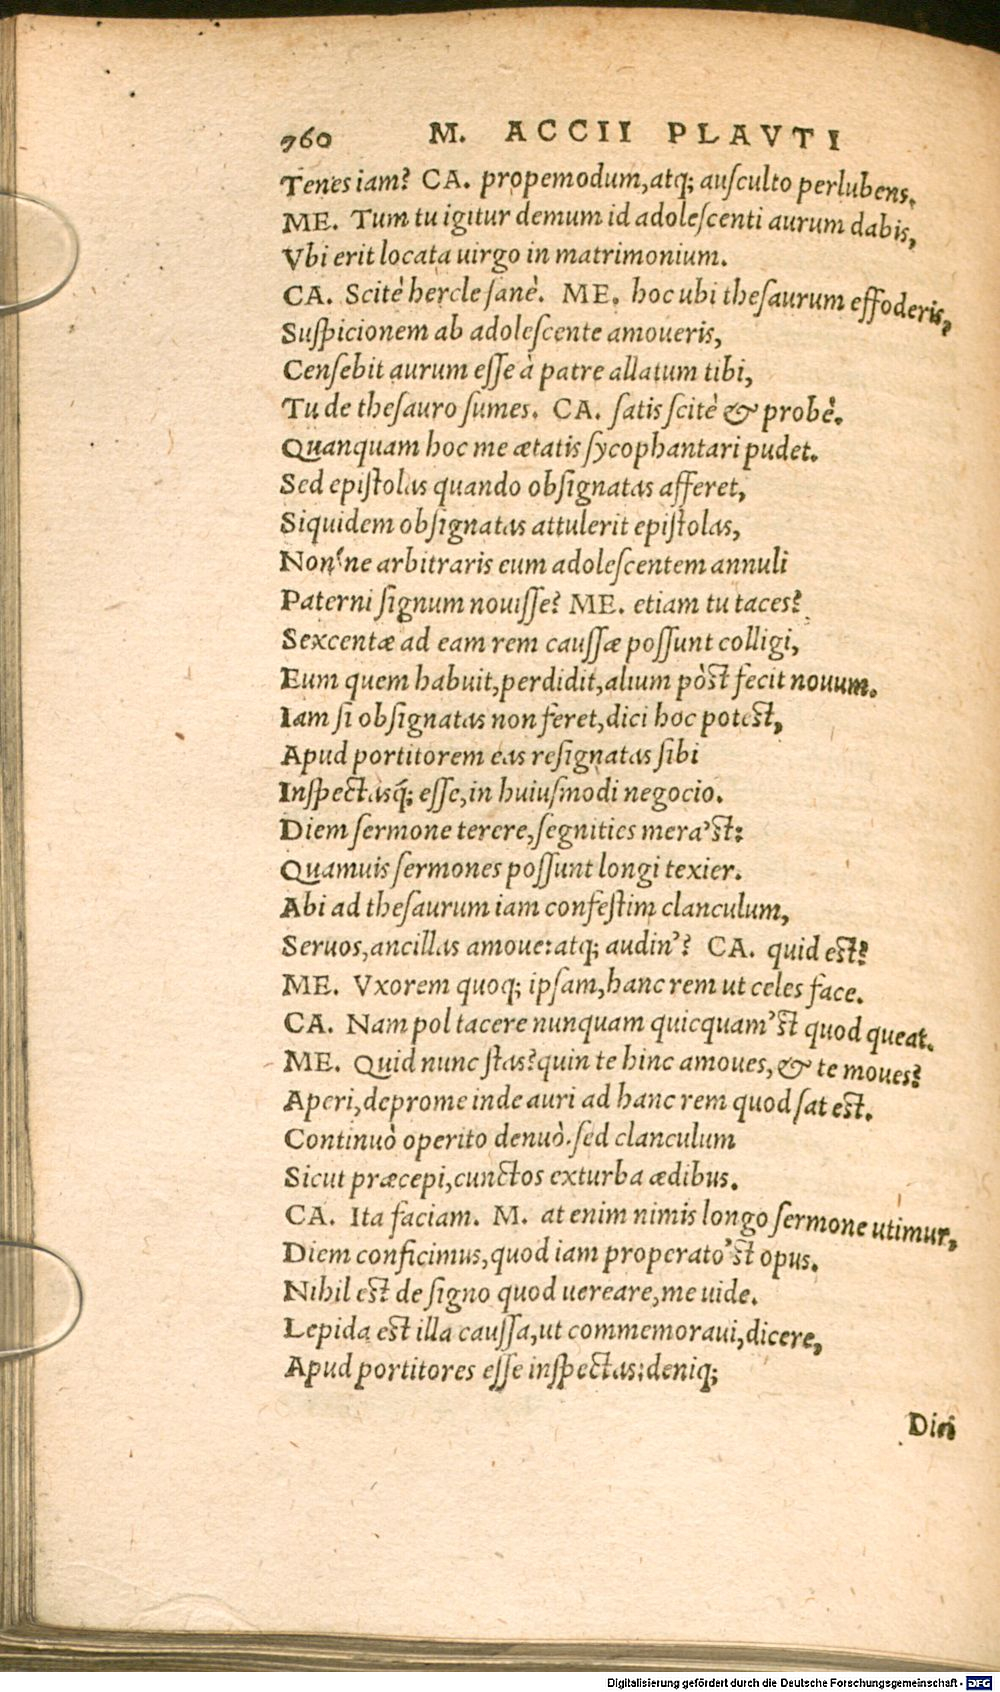 760 M. ACCII PLAVTI
Tenes iam? CA. propemodum, atq; ausculto perlubens.
ME. Tum tu igitur demum id adolescenti aurum dabis,
Vbi erit locata uirgo in matrimonium.
CA. Scitè hercle sanè. ME. hoc ubi thesaurum effoderis,
Suspicionem ab adolescente amoueris,
Censebit aurum esse à patre allatum tibi,
Tu de thesauro sumes. CA. satis scitè & probè.
Quanquam hoc me ætatis sycophantari pudet.
Sed epistolas quando obsignatas afferet,
Siquidem obsignatas attulerit epistolas,
Non'ne arbitraris eum adolescentem annuli
Paterni signum nouisse? ME. etiam tu taces?
Sexcentæ ad eam rem caussæ possunt colligi,
Eum quem habuit, perdidit, alium pòst fecit nouum.
Iam si obsignatas non feret, dici hoc potest,
Apud portitorem eas resignatas sibi
Inspectasq́; esse, in huiusmodi negocio.
Diem sermone terere, segnities mera'st:
Quamuis sermones possunt longi texier.
Abi ad thesaurum iam confestim clanculum,
Seruos, ancillas amoue: atq; audin'? CA. quid est?
ME. Vxorem quoq; ipsam, hanc rem ut celes face.
CA. Nam pol tacere nunquam quicquam'st quod queat.
ME. Quid nunc stas? quin te hinc amoues, & te moues?
Aperi, deprome inde auri ad hanc rem quod sat est.
Continuò operito denuò. sed clanculum
Sicut præcepi, cunctos exturba ædibus.
CA. Ita faciam. M. at enim nimis longo sermone utimur,
Diem conficimus, quod iam properato'st opus.
Nihil est de signo quod uereare, me uide.
Lepida est illa caussa, ut commemoraui, dicere,
Apud portitores esse inspectas: deniq;
Diei
Digitalisierung gefördert durch die Deutsche Forschungsgemeinschaft - DFG